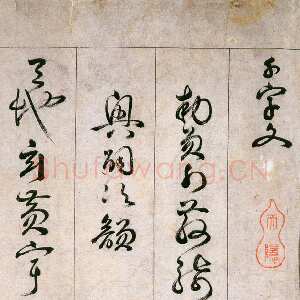 千字文
勅員外散騎
興嗣次韻
天地玄黃宇
shufawang.CN